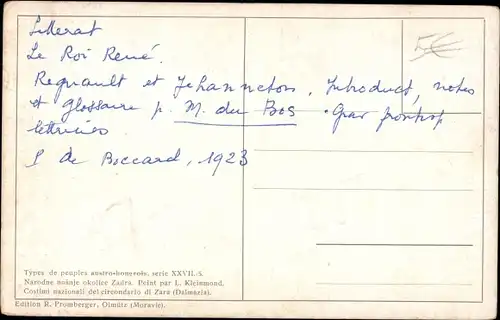 Litterat
Le Roi René.
Regnault et Jehanneton. Introduct, notes
et glossaire p. M. du Bos. Grav frontisp
lettrines
P de Boccard, 1923
5€
Types de peuples austro-hongrois, serie XXVII./5.
Narodne nošnje okolice Zadra. Peint par L. Kleinmond.
Costimi nazionali del circondario di Zara (Dalmazia).
Edition R. Promberger, Olmütz (Moravie).